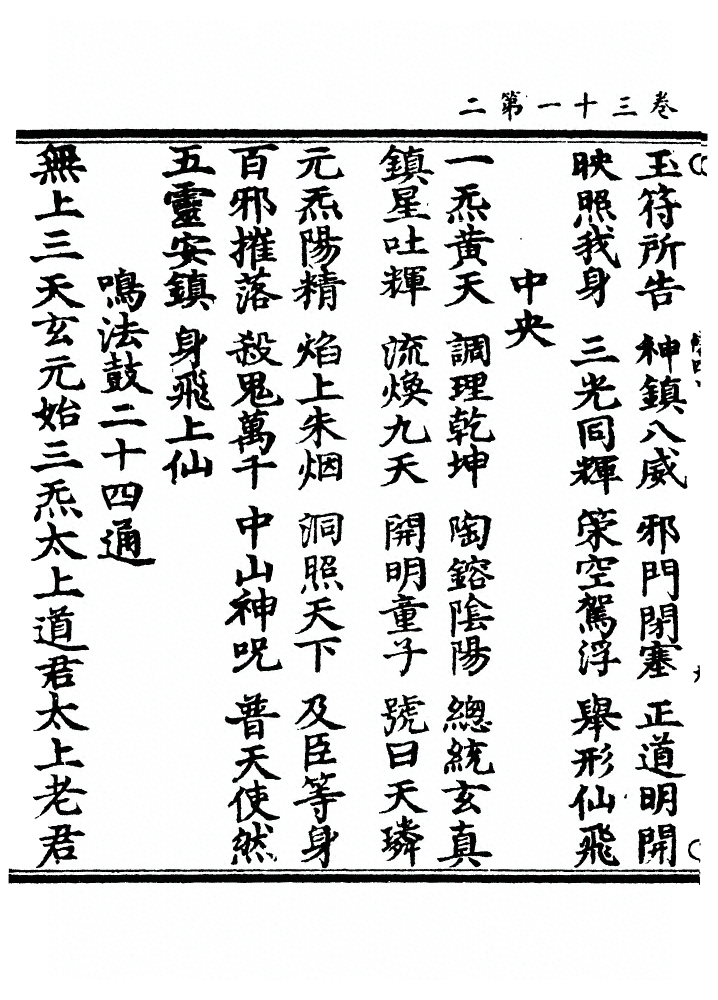 卷三十一第二
玉符所告　神鎮八威　邪門閉塞　正道明開
映照我身　三光同輝　策空駕浮　舉形仙飛
中央
一炁黃天　調理乾坤　陶鎔陰陽　總統玄真
鎮星吐輝　流煥九天　開明童子　號曰天璘
元炁陽精　焰上朱烟　洞照天下　及臣等身
百邪摧落　殺鬼萬千　中山神呪　普天使然
五靈安鎮　身飛上仙
鳴法鼓二十四通
無上三天玄元始三炁太上道君太上老君